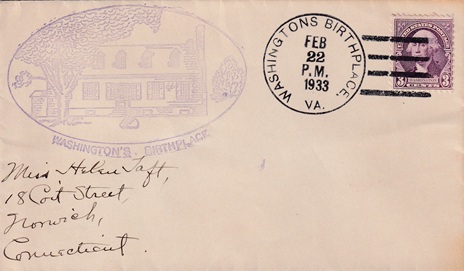 WASHINGTON'S BIRTHPLACE
WASHINGTONS BIRTHPLACE
FEB
22
P.M.
1933
VA.
3
CENTS
3
Miss Helen Taft,
18 Coit Street,
Norwich,
Connecticut.